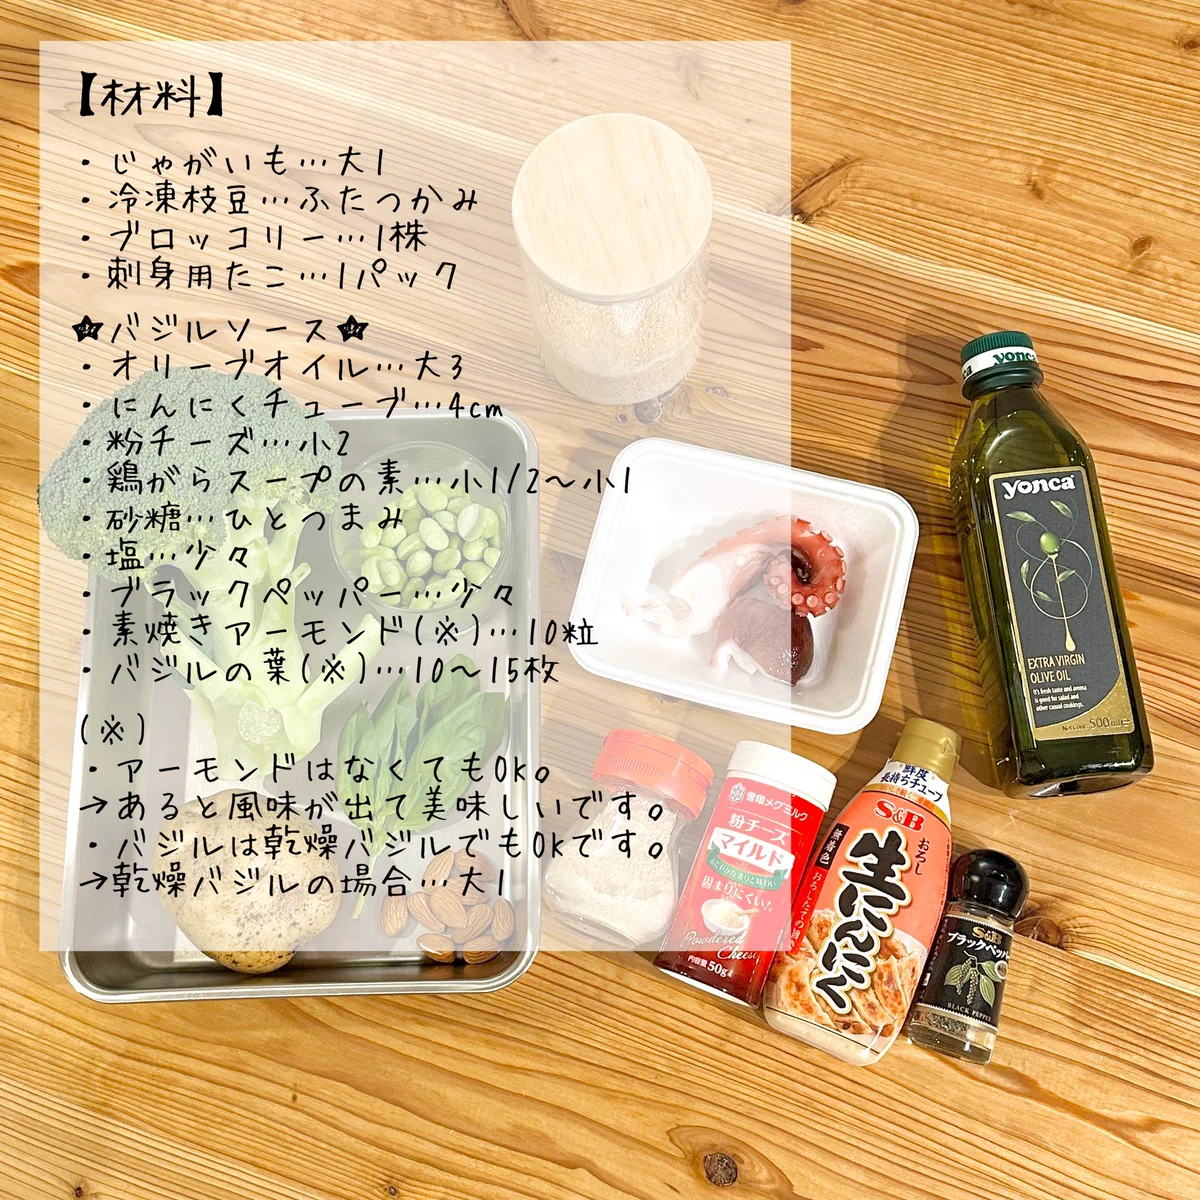 【材料】
・じゃがいも…大1
・冷凍枝豆…ふたつかみ
・ブロッコリー…1株
・刺身用たこ…1パック
★バジルソース★
・オリーブオイル…大3
・にんにくチューブ…4cm
・粉チーズ…小2
・鶏がらスープの素…小1/2〜小1
・砂糖…ひとつまみ
・塩…少々
・ブラックペッパー…少々
・素焼きアーモンド(※)…10粒
・バジルの葉(※)…10〜15枚
(※)
・アーモンドはなくてもOK。
→あると風味が出て美味しいです。
・バジルは乾燥バジルでもOKです。
→乾燥バジルの場合…大1
yonca
yonca
EXTRA VIRGIN
OLIVE OIL
It's fresh taste and aroma
is good for salad and
other casual cookings.
500
雪印メグミルク
粉チーズ
マイルド
固まりにくい!
Powdered
Cheese
内容量50g
鮮度
長持ちチューブ
S&B
おろし
生にんにく
無着色
S&B
ブラックペッパー
BLACK PEPPER